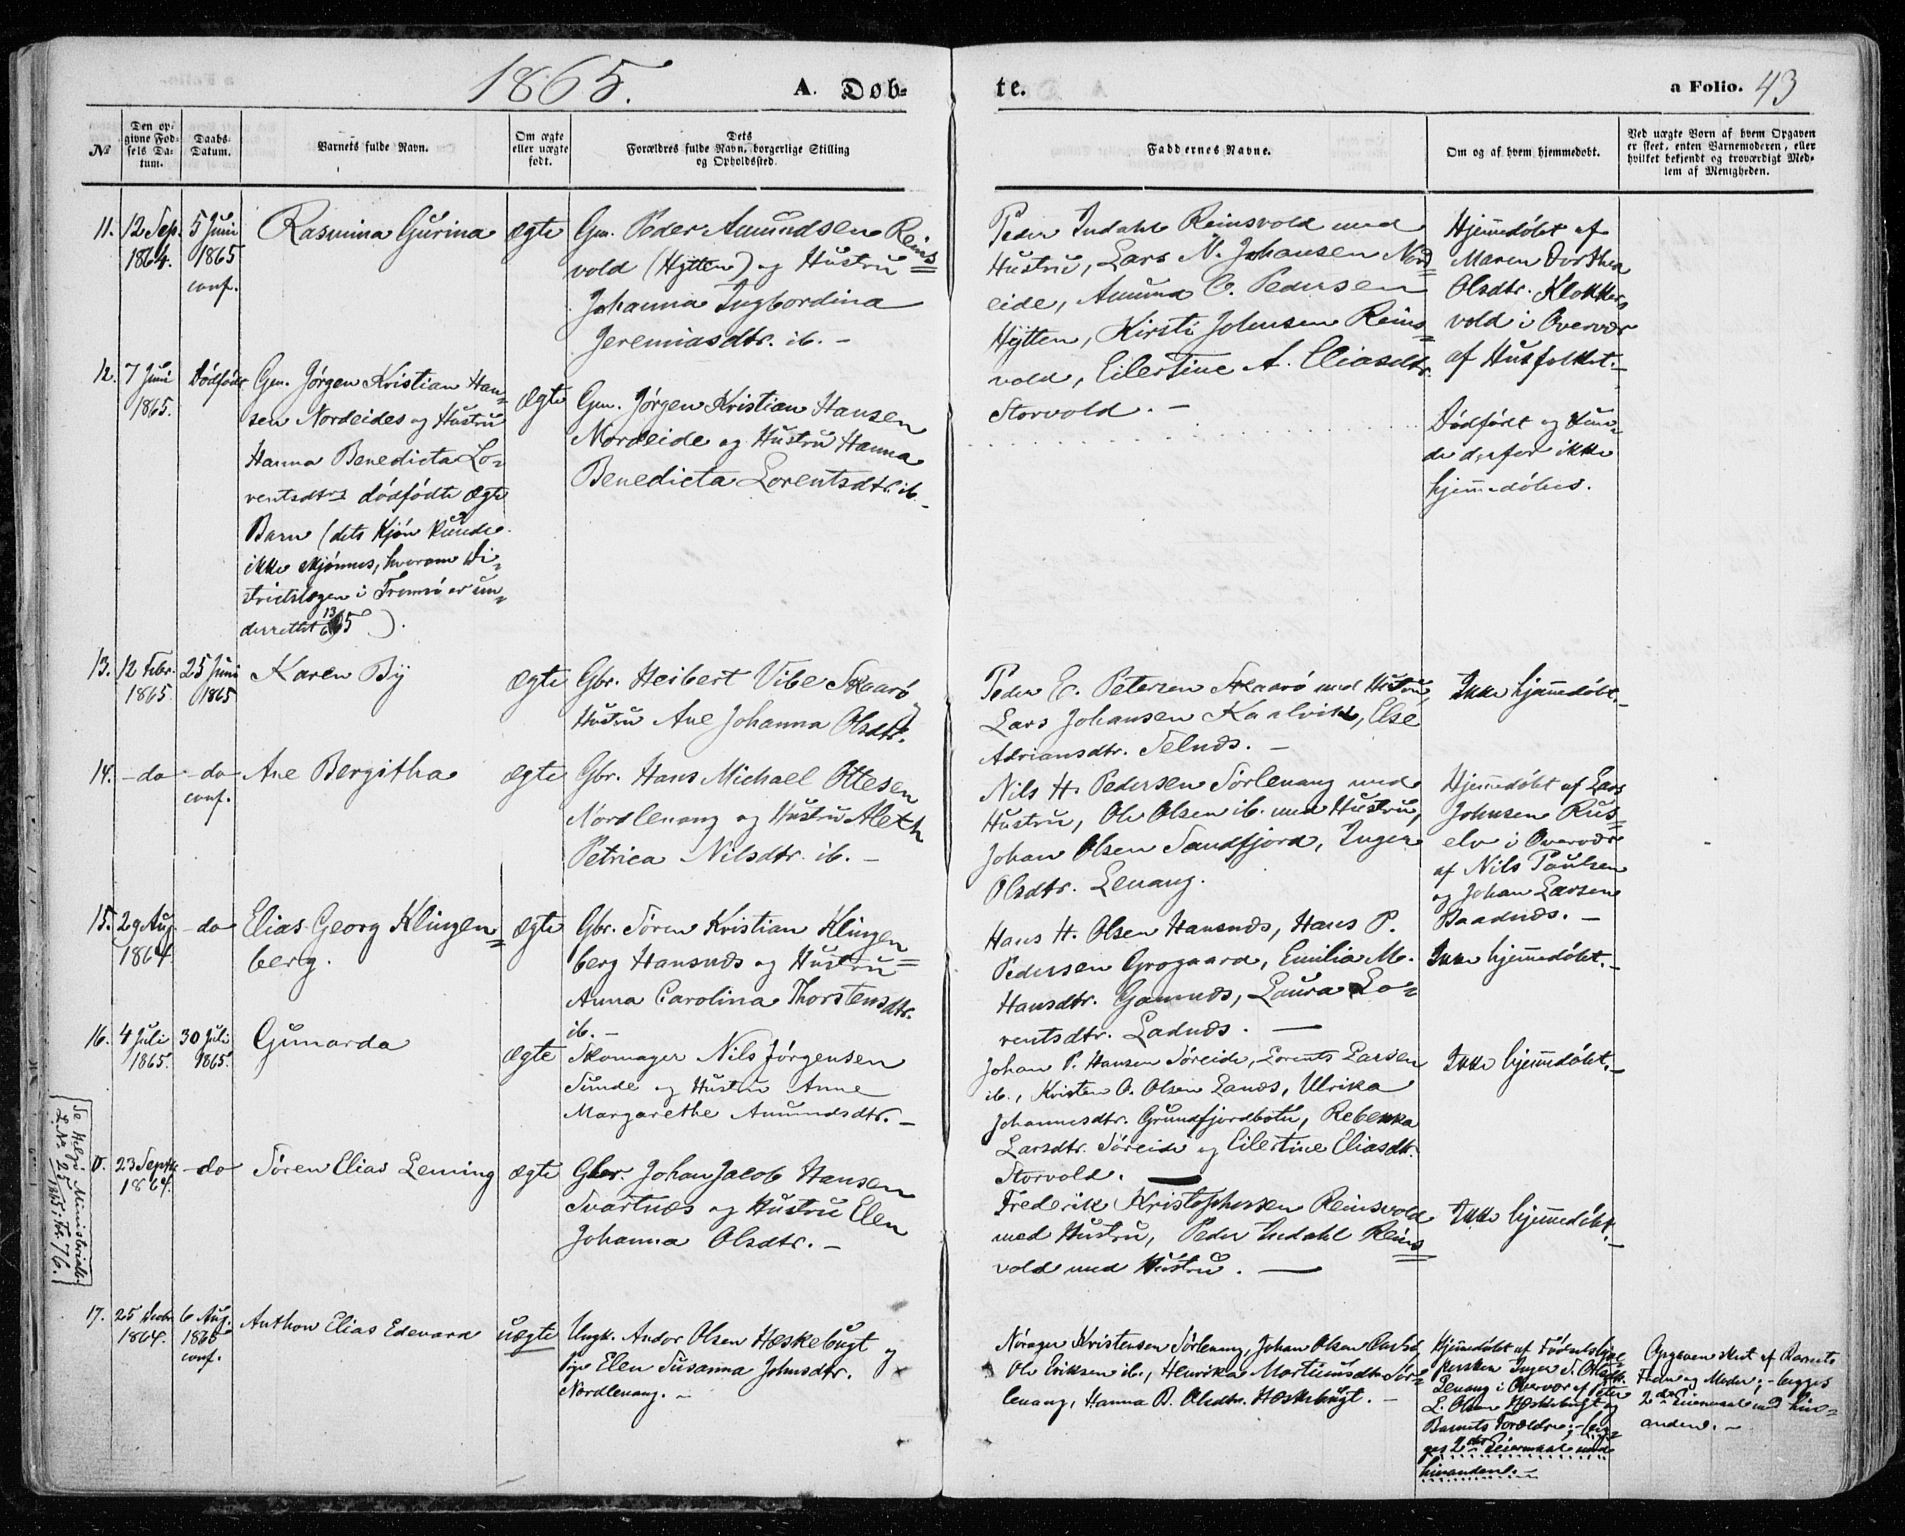 1865.
A. Døb-
te.
a Folio. 43
№
Den op-
givne Fød-
sels Da-
tum.
Daabs-
Datum.
Barnets fulde Navn.
Om ægte
eller uægte
født.
Dets
Forældres fulde Navn, borgerlige Stilling
og Opholdssted.
Faddernes Navne.
Om og af hvem hjemmedøbt.
Ved uægte Børn af hvem Opgaven
er skeet, enten Barnemoderen, eller
hvilket bekjendt og troværdigt Med-
lem af Menigheden.
11.
12 Sep.
1864.
5 Juni
1865
conf.
Rasmina Gurina
ægte
Gm. Peder Amundsen Reins=
vold (Hytten) og Hustru
Johanna Ingbordina
Jeremiasdtr. ib. –
Peder Indahl Reinsvold med
Hustru, Lars N. Johansen Nord=
eide, Amund C. Pedersen
Hytten, Kirsti Johnsen Reins=
vold, Eilertine A. Eliasdtr.
Storvold. –
Hjemmedøbt af
Maren Dorthea
Olsdtr. Klokkers
vold i Overvær
af Husfolket. –
12.
7 Juni
1865.
Dødfødt
Gm. Jørgen Kristian Han=
sen Nordeides og Hustru
Hanna Benedicta Lo-
rentsdtrs dødfødte ægte
Barn (dets Kjøn kunde
ikke skjønnes, hvorom Di-
strictslægen i Tromsø er un=
derrettet 13/6 65).
ægte
Gm. Jørgen Kristian Hansen
Nordeide og Hustru Hanna
Benedicta Lorentsdtr. ib. –
Dødfødt og kun=
de derfor ikke
hjemmedøbes.
13.
12 Febr.
1865.
25 Juni
1865
Karen By
ægte
Gbr. Heibert Vibe Skaarø og
Hustru Ane Johanna Olsdtr.
Peder E. Petersen Skaarø med Hustru,
Lars Johansen Kaalvik, Else
Adriansdtr. Selnæs. –
Ikke hjemmedøbt. –
14.
– do
– do
conf.
Ane Bergitha
ægte
Gbr. Hans Michael Ottesen
Nordlenang og Hustru Aleth
Petrica Nilsdtr. ib. –
Nils H. Pedersen Sørlenang med
Hustru, Ole Olsen ib. med Hustru,
Johan Olsen Sandfjord, Inger
Olsdtr. Lenang.
Hjemmedøbt af Lars
Johnsen Rus=
elv i Overvær
af Nils Paulsen
og Johan Larsen
Baadnæs. –
15.
29 Aug.
1864
– do
Elias Georg Klingen=
berg.
ægte
Gbr. Søren Kristian Klingen=
berg Hansnæs og Hustru
Anna Carolina Thorstensdtr.
ib. –
Hans H. Olsen Hansnæs, Hans P.
Pedersen Grogaard, Emilia M.
Hansdtr. Gamnæs, Laura Lo=
rentsdtr. Ladnæs. –
Ikke hjemmedøbt. –
16.
4 Juli
1865.
30 Juli
1865.
Gunarda
ægte
Skomager Nils Jørgensen
Sunde og Hustru Anne
Margarethe Amundsdtr. –
Johan P. Hansen Søreide, Lorents Larsen
ib., Kristen O. Olsen Lanæs, Ulrika
Johannesdtr. Grundfjordbotn, Rebekka
Larsdtr. Søreide og Eilertine Eliasdtr.
Storvold. –
Ikke hjemmedøbt. –
Se Helgø Ministerialb.
L. Nr. 25 1865: Fol. 76.
0.
23 Septbr.
1864.
– do
Søren Elias Leming
ægte
Gbr. Johan Jacob Hansen
Svartnæs og Hustru Elen
Johanna Olsdtr. –
Frederik Kristophersen Reinsvold
med Hustru, Peder Indahl Reins
vold med Hustru. –
Ikke hjemmedøbt. –
17.
25 Decbr.
1864.
6 Aug.
1865
conf.
Anthon Elias Edevard
uægte
Ungk. Andor Olsen Hæskebugt og
Pige Elen Susanna Johnsdtr.
Nordlenang. –
Nørager Kristensen Sørlenang, Johan Olsen
Ole Eriksen ib., Henrika Martinusdtr. Sør=
lenang, Hanna O. Olsdtr. Hæskebugt. –
Hjemmedøbt af Fødselshjæl
persken Inger S. Olsdtr.
Lenang i Overvær af Peter
L. Olsen Hæskebugt og
Barnets Forældre; – beg=
ges 2det Leiermaal med
hinanden. –
Opgaven skeet af Barnets
Fader og Moder; – begges
2det Leiermaal med hin=
anden. –